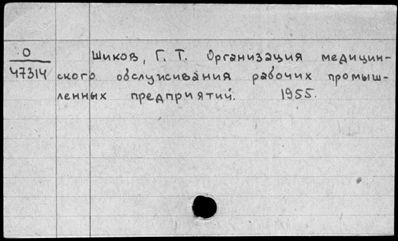 О
47314
Шиков, Г. Т. Организация медицин-
ского обслуживания рабочих промыш-
ленных предприятий. 1955.